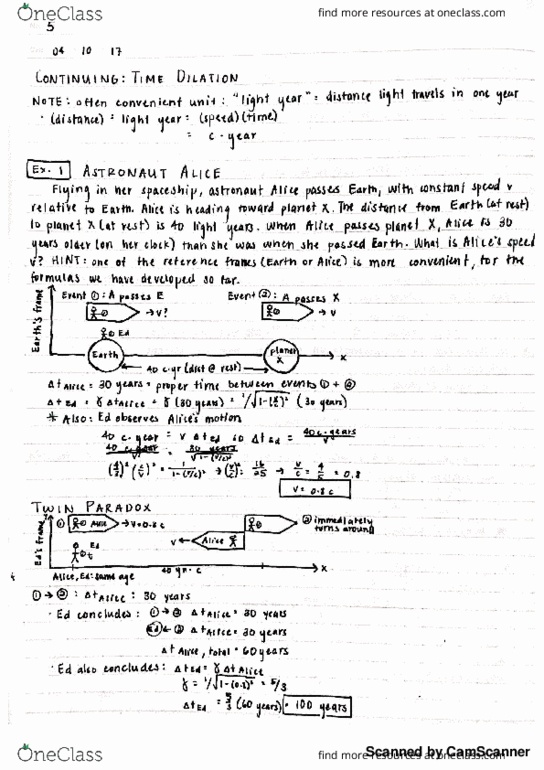 OneClass
find more resources at oneclass.com
5
04 10 17
CONTINUING: TIME DILATION
NOTE: often convenient unit: "light year" = distance light travels in one year
· (distance) = light year = (speed)(time)
= c · year
Ex. 1 ASTRONAUT ALICE
Flying in her spaceship, astronaut Alice passes Earth, with constant speed v
relative to Earth. Alice is heading toward planet X. The distance from Earth (at rest)
to planet X (at rest) is 40 light years. When Alice passes planet X, Alice is 30
years older (on her clock) than she was when she passed Earth. What is Alice's speed
v? HINT: one of the reference frames (Earth or Alice) is more convenient, for the
formulas we have developed so far.
Earth's frame
Event ①: A passes E
Event ②: A passes X
→ v?
→ v
Ed
Earth
planet X
x
40 c·yr (dist @ rest)
Δt Alice = 30 years = proper time between events ① + ②
Δt Ed = γ Δt Alice = γ (30 years) = 1/√1-(v/c)² (30 years)
* Also: Ed observes Alice's motion
40 c·year = v Δt Ed so Δt Ed = 40 c·years / v
40 c·year / v = 30 years / √1-(v/c)²
(4/3)² (c/v)² = 1/1-(v/c)² → (v/c)² = 16/25 → v/c = 4/5 = 0.8
v = 0.8 c
TWIN PARADOX
Ed's frame
① Alice → v=0.8 c
② immediately
turns around
v ← Alice
Ed
x
Alice, Ed: same age
40 yr · c
① → ②: Δt Alice = 30 years
· Ed concludes: ① → ② Δt Alice = 30 years
Ed ← ② Δt Alice = 30 years
Δt Alice, total = 60 years
· Ed also concludes: Δt Ed = γ Δt Alice
γ = 1/√1-(0.8)² = 5/3
Δt Ed = 5/3 (60 years) = 100 years
Scanned by CamScanner
OneClass
find more resources at oneclass.com